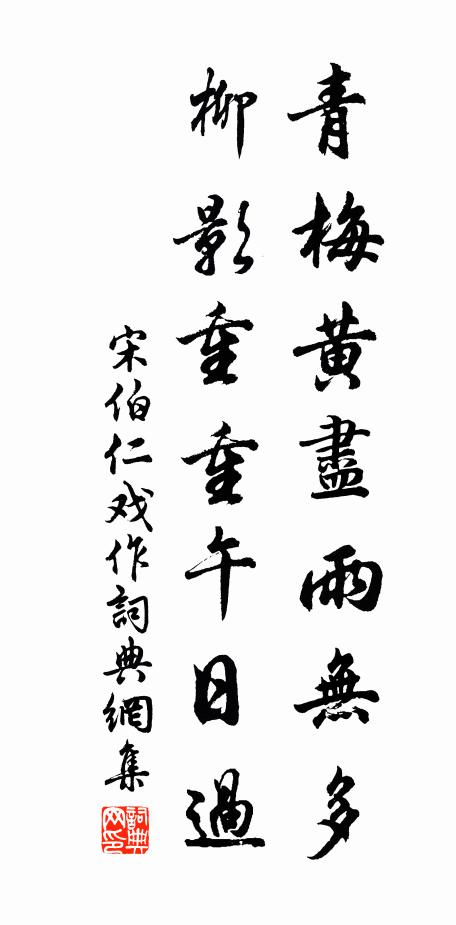 青梅黄盡雨無多
柳影重重午日過
宋伯仁戏作詞典網集
詞典网印